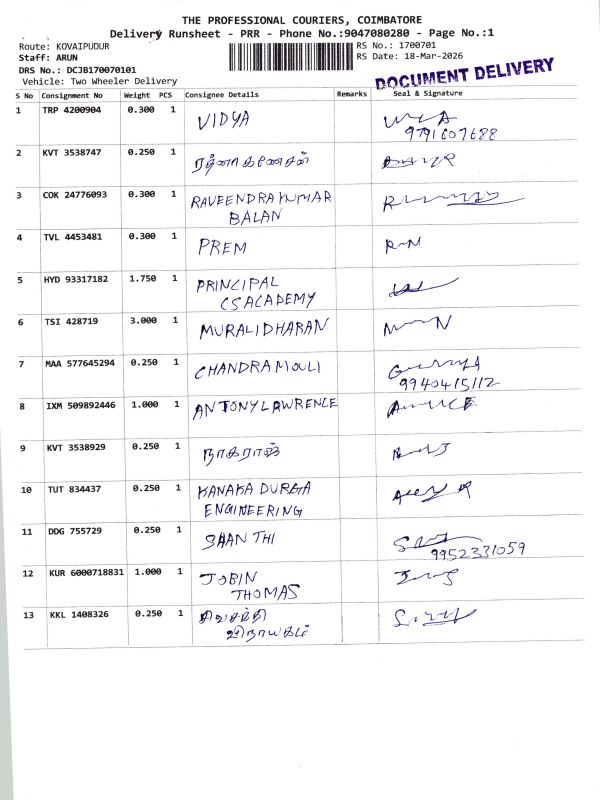 THE PROFESSIONAL COURIERS, COIMBATORE
Delivery Runsheet - PRR - Phone No.:9047080280 - Page No.:1
Route: KOVAIPUDUR
RS No.: 1700701
Staff: ARUN
RS Date: 18-Mar-2026
DRS No.: DCJB170070101
Vehicle: Two Wheeler Delivery
DOCUMENT DELIVERY
S No Consignment No Weight PCS Consignee Details Remarks Seal & Signature
1 TRP 4200904 0.300 1 VIDYA
9791607688
2 KVT 3538747 0.250 1 ரத்னா கணேசன்
3 COK 24776093 0.300 1 RAVEENDRAKUMAR
BALAN
4 TVL 4453481 0.300 1 PREM
5 HYD 93317182 1.750 1 PRINCIPAL
CSACADEMY
6 TSI 428719 3.000 1 MURALIDHARAN
7 MAA 577645294 0.250 1 CHANDRAMOULI
9940415112
8 IXM 509892446 1.000 1 ANTONYLAWRENCE
9 KVT 3538929 0.250 1 நாகராஜ்
10 TUT 834437 0.250 1 KANAKA DURGA
ENGINEERING
11 DDG 755729 0.250 1 SHANTHI
9952331059
12 KUR 6000718831 1.000 1 JOBIN
THOMAS
13 KKL 1408326 0.250 1 சிவசக்தி
விநாயகம்